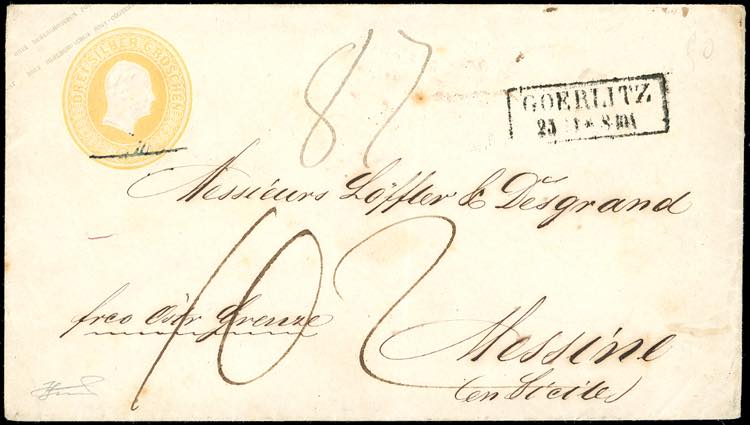 DREI SILBER GROSCHEN
87
GOERLITZ
Messieurs Löffler & Desgrand
102
frco Östr Grenze
Messine
(en Sicile)